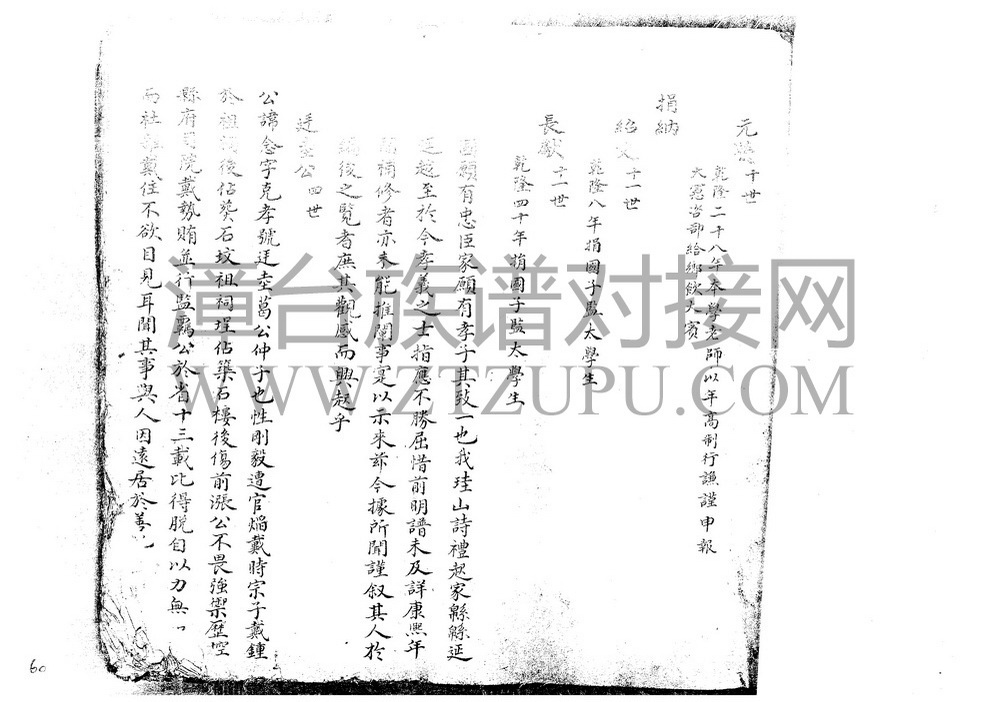 元 十世
乾隆二十八年本學老師以年高制行謙謹申報
大憲咨部給鄉飲大賓
捐納
紹文十一世
乾隆八年捐國子監太學生
長獻十一世
乾隆四十年捐國子監太學生
國願有忠臣家願有孝子其致一也我珪山詩禮起家緜緜延
延越至於今孝義之士指應不勝屈惜前明譜未及詳康熙年
間補修者亦未能推闡事寔以示來茲今據所聞謹叙其人於
編後之覽者庶其觀感而興起乎
廷圭公四世
公諱念字克孝號廷圭萬公仲子也性剛毅遭官焰戴時宗子戴鍾
於祖祠後佔葬石坟祖祠埕佔築石樓後傷前漲公不畏強禦歷控
縣府司院戴勢賄並行監羈公於省十三載比得脫自以力無
而社 戴住不欲目見耳聞其事與人因遠居於善
漳台族谱对接网
WWW.ZTZUPU.COM
60